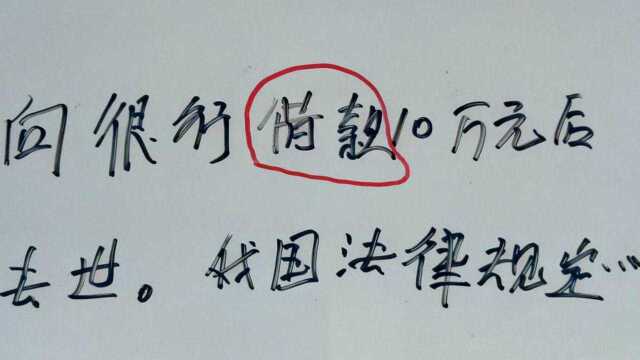 向银行借款10万元后
去世。我国法律规定...